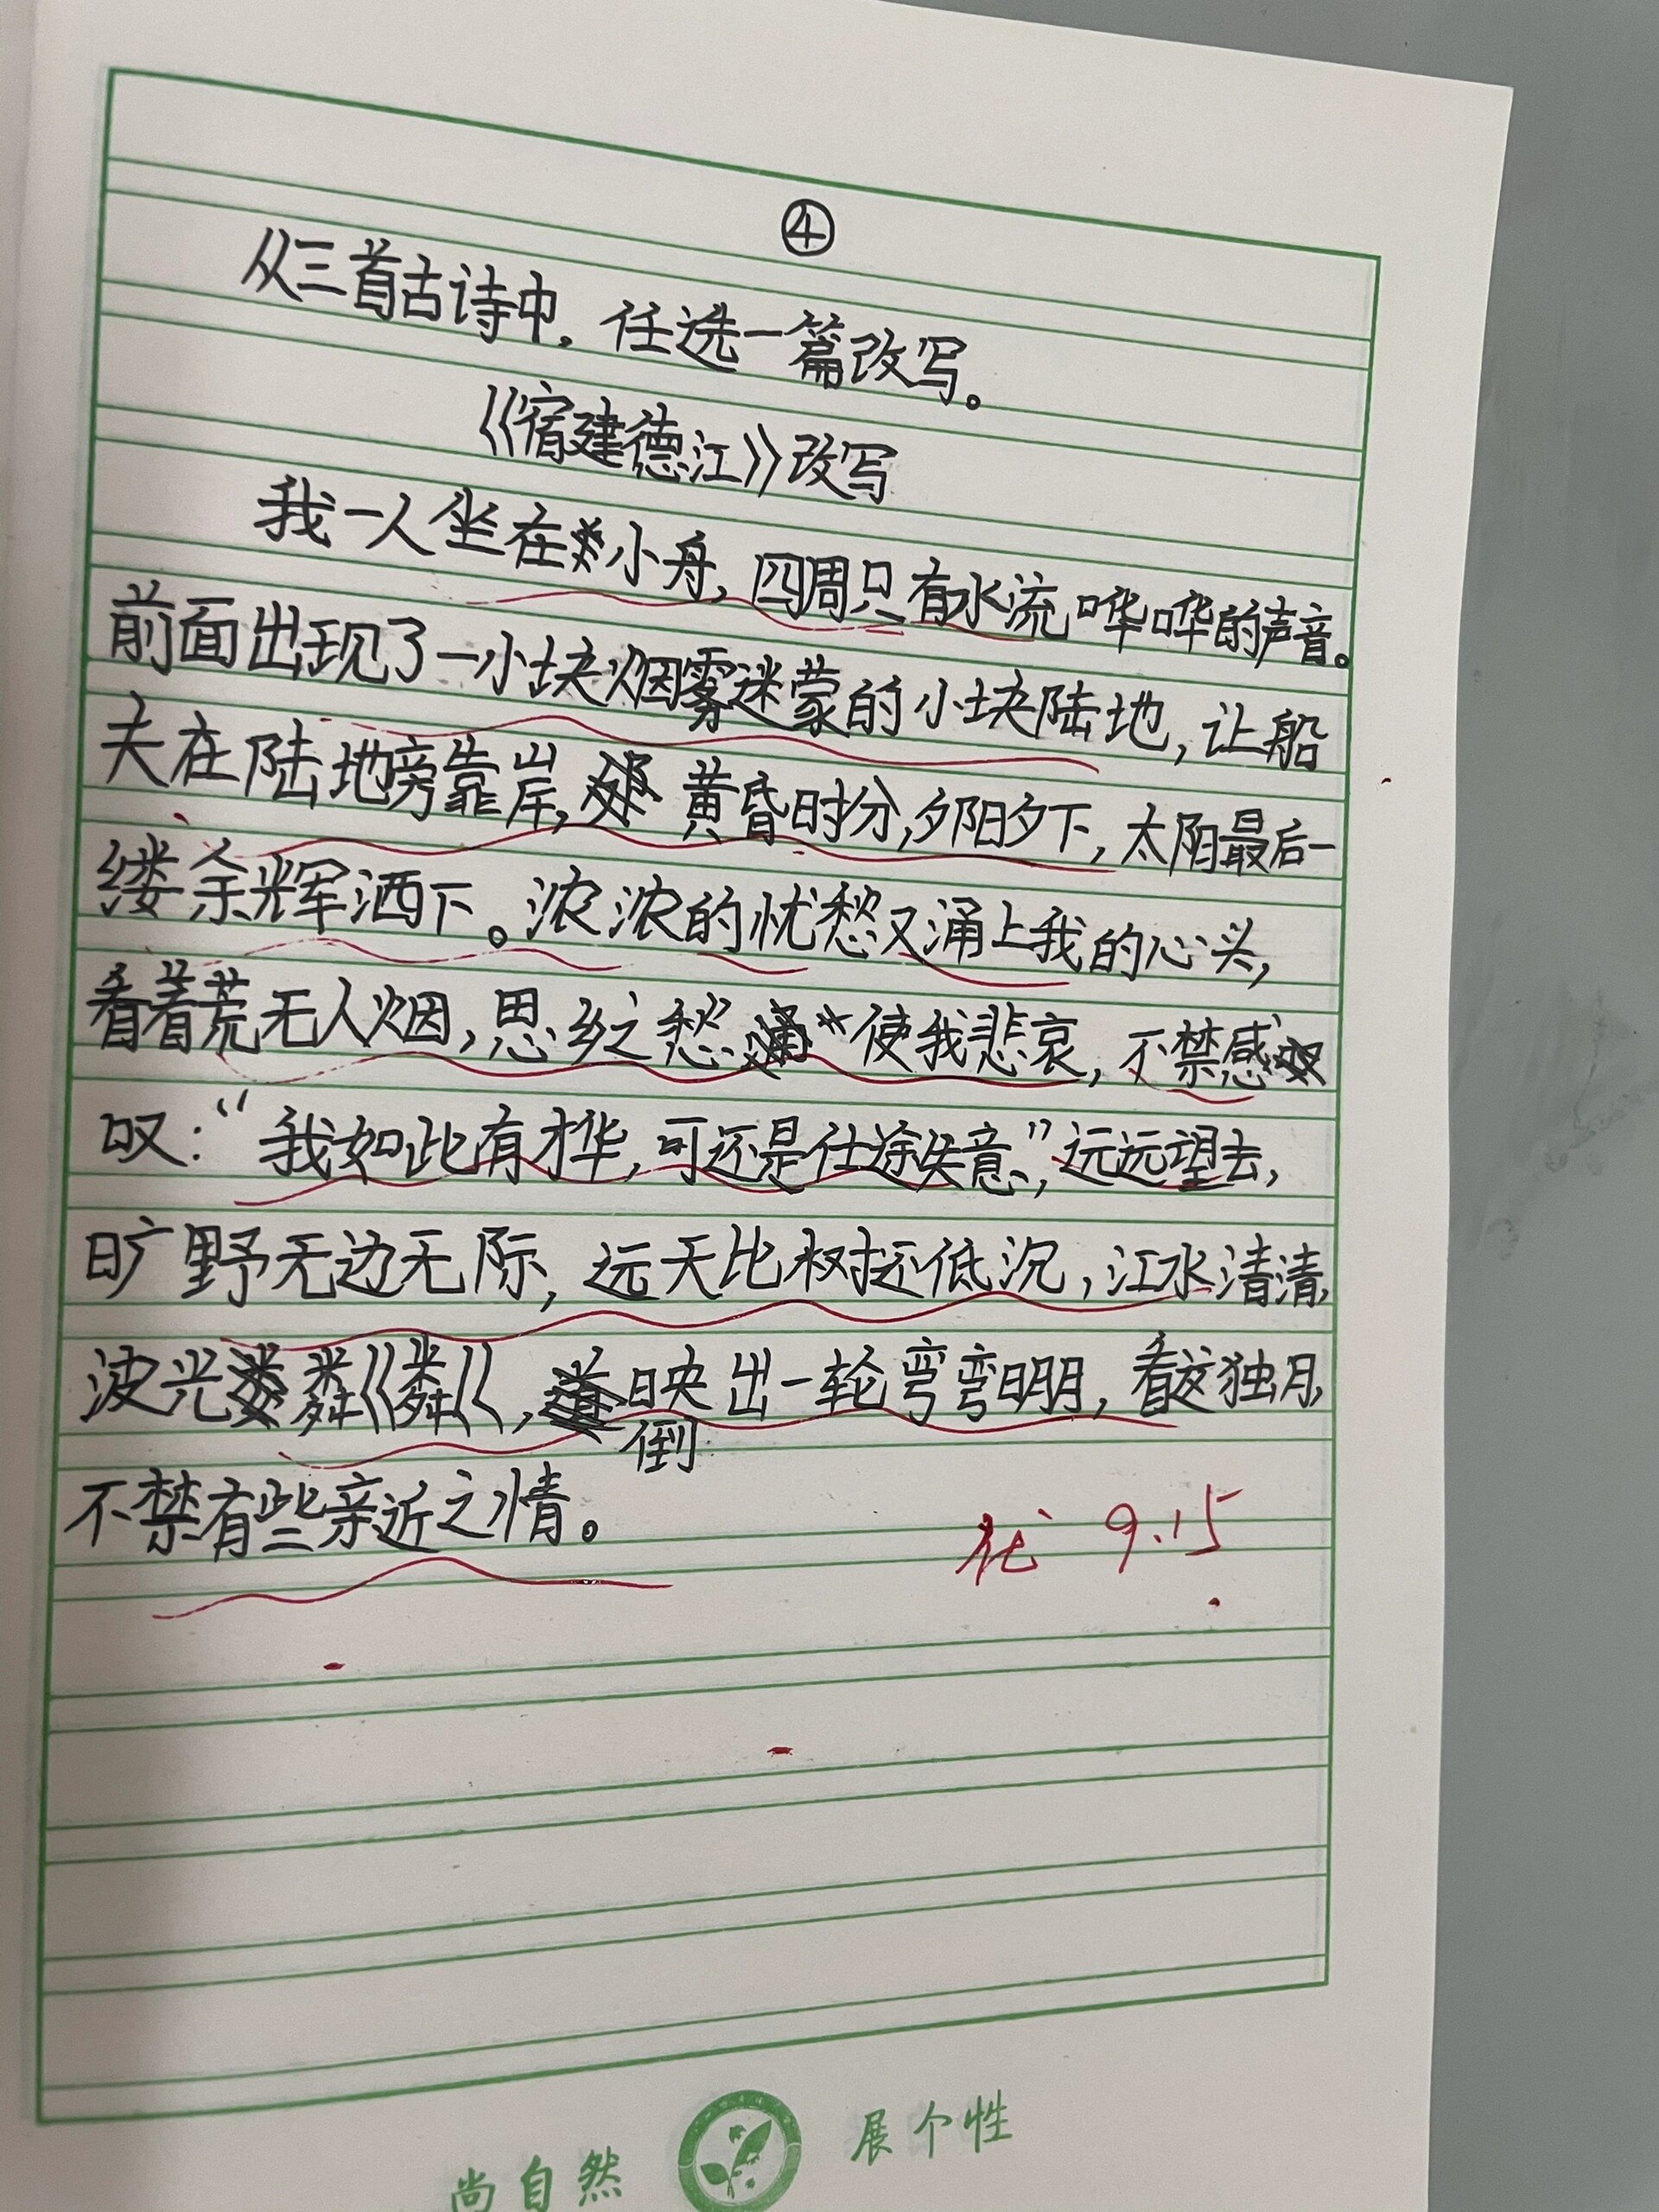 ④
从三首古诗中，任选一篇改写。
《宿建德江》改写
我一人坐在小舟，四周只有水流哗哗的声音。
前面出现了一小块烟雾迷蒙的小块陆地，让船
夫在陆地旁靠岸，黄昏时分，夕阳夕下，太阳最后一
缕余辉洒下。浓浓的忧愁又涌上我的心头，
看着荒无人烟，思乡之愁使我悲哀，不禁感
叹：“我如此有才华，可还是仕途失意，”远远望去，
旷野无边无际，远天比树还低沉，江水清清，
波光粼粼，倒映出一轮弯弯明月，看这独月，
不禁有些亲近之情。
优 9.15
尚自然 展个性